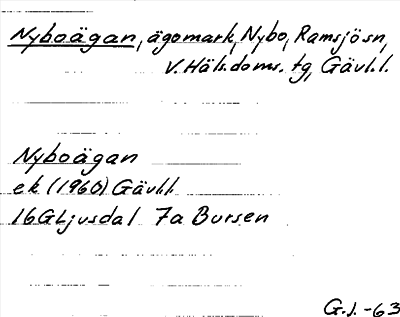 Nyboägan, ägomark, Nybo, Ramsjösn,
V. Häls. doms. tg, Gävl.l.
Nyboägan
ek (1960) Gävl.l.
16G Ljusdal 7a Bursen
G.J. -63